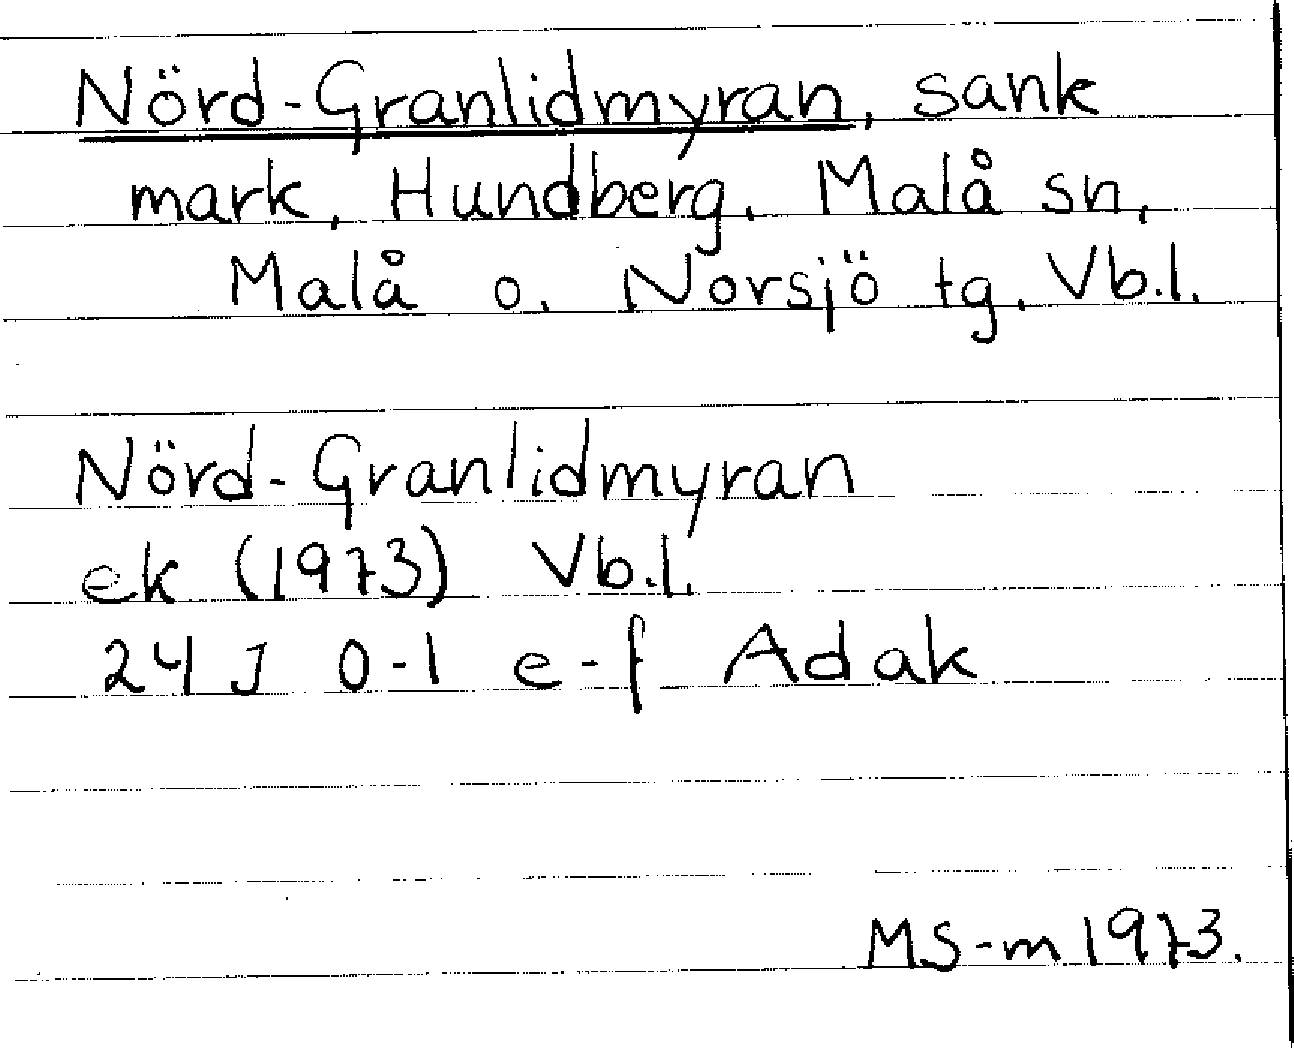 Nörd-Granlidmyran, sank
mark, Hundberg. Malå sn,
Malå o. Norsjö tg. Vb.l.
Nörd-Granlidmyran
ek (1973) Vb.l.
24 J 0-1 e-f Adak
MS-m 1973.